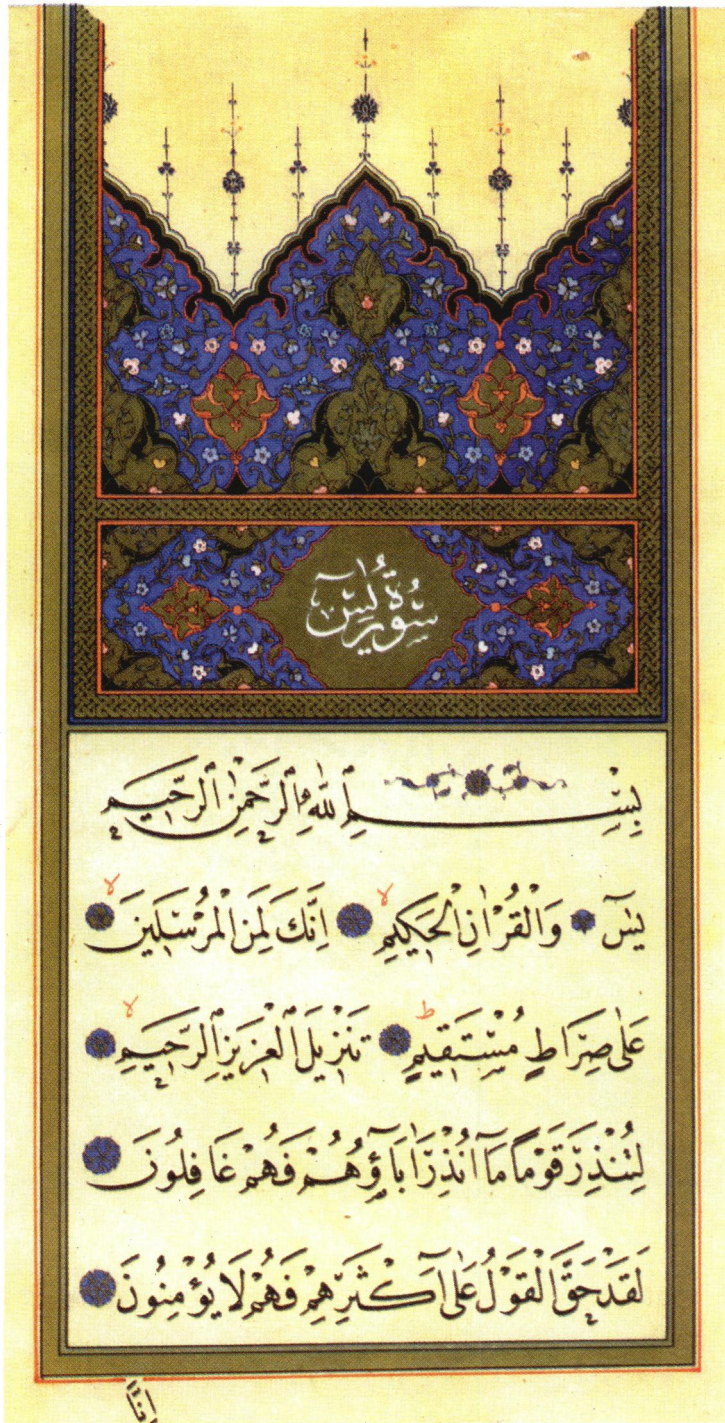 سُورَةُ يٰسٓ
بِسْمِ ٱللّٰهِ ٱلرَّحْمٰنِ ٱلرَّحِيمِ
يٰسٓ وَالْقُرْاٰنِ الْحَكِيمِ ۙ اِنَّكَ لَمِنَ الْمُرْسَلِينَ ۙ
عَلٰى صِرَاطٍ مُسْتَقِيمٍ ۜ تَنْزِيلَ الْعَزِيزِ الرَّحِيمِ ۙ
لِتُنْذِرَ قَوْمًا مَآ اُنْذِرَ اٰبَآؤُهُمْ فَهُمْ غَافِلُونَ
لَقَدْ حَقَّ الْقَوْلُ عَلٰٓى اَكْثَرِهِمْ فَهُمْ لَا يُؤْمِنُونَ
اِنَّا